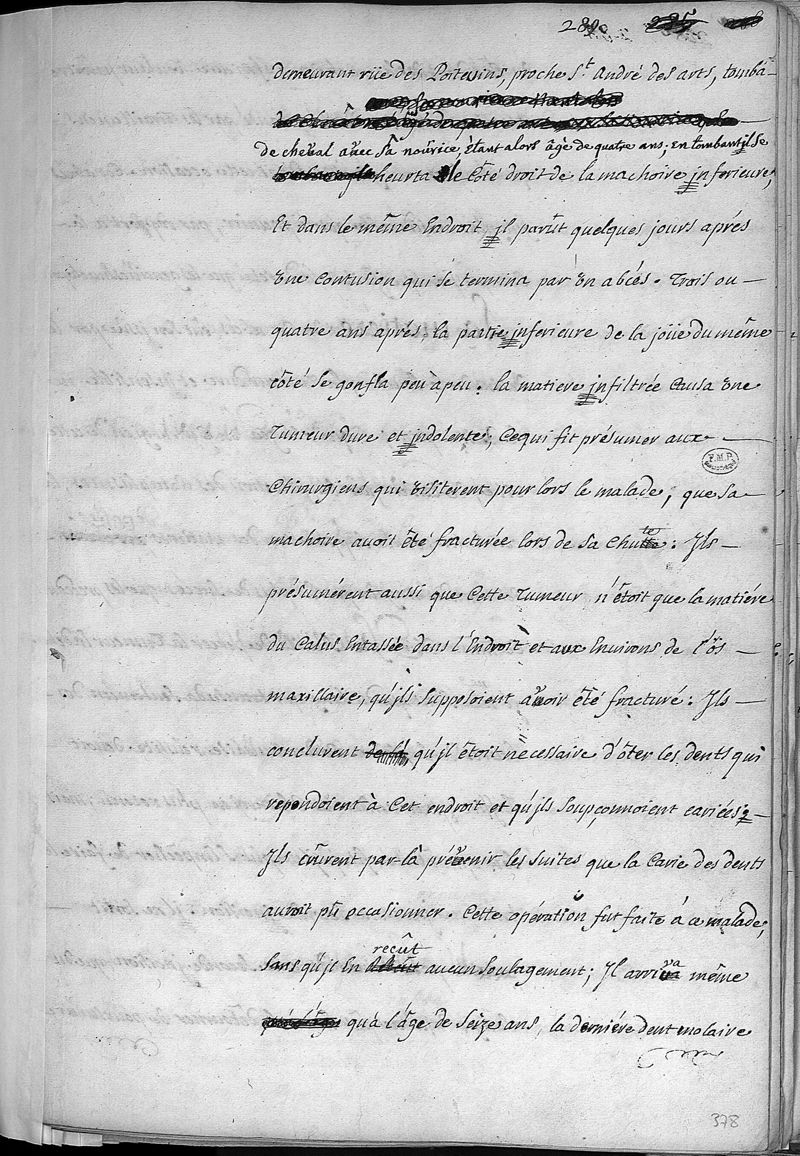 280
demeurant rüe des Poitevins, proche St. André des arts, tomba
de cheval avec sa nourice, étant alors âgé de quatre ans; en tombant jl se
heurta le côté droit de la machoire jnferieure,
Et dans le même Endroit jl parût quelques jours aprés
une Contusion qui se termina par un abcés. Trois ou
quatre ans aprés, la partie jnferieure de la joüe du même
côté se gonfla peu à peu: la matiere jnfiltrée Causa une
Tumeur dure et jndolente, Ce qui fit présumer aux
Chirurgiens qui visiterent pour lors le malade, que sa
machoire avoit été fracturée lors de sa Chute: Jls
présumérent aussi que Cette Tumeur n'étoit que la matiére
du Calus Entassée dans l'Endroit et aux Environs de l'ôs
maxillaire, qu'jls supposoient avoir été fracturé: Jls
conclurent de là qu'jl étoit nécessaire d'ôter les dents qui
repondoient à Cet endroit et qu'jls soupçonnoient cariées
Jls crûrent par là prévenir les suites que la Carie des dents
auroit pû occasionner. Cette opération fut faite à ce malade,
sans qu'jl en reçût aucun soulagement; Jl arriva même
qu'à l'âge de seize ans, la derniére dent molaire
378